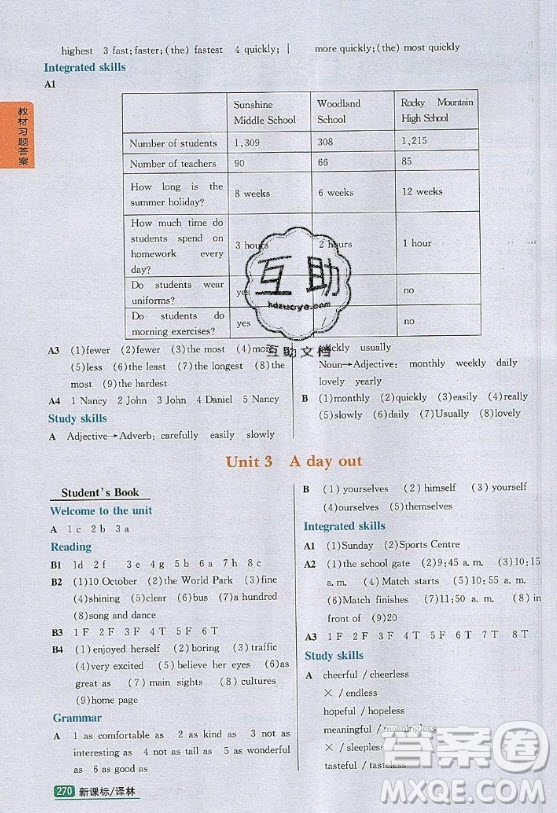 highest 3 fast; faster; (the) fastest 4 quickly; | more quickly; (the) most quickly
Integrated skills
A1
Sunshine Middle School Woodland School Rocky Mountain High School
Number of students 1,309 308 1,215
Number of teachers 90 66 85
How long is the summer holiday? 8 weeks 6 weeks 12 weeks
How much time do students spend on homework every day? 3 hours 2 hours 1 hour
Do students wear uniforms? yes / no
Do students do morning exercises? yes / no
A3 (1)fewer (2)fewer (3)the most (4)more
(5)less (6)the least (7)the longest (8)the
most (9)the hardest
A4 1 Nancy 2 John 3 John 4 Daniel 5 Nancy
Study skills
A Adjective→Adverb: carefully easily slowly
quickly usually
Noun→Adjective: monthly weekly daily
lovely yearly
B (1)monthly (2)quickly (3)easily (4)really
(5)slowly (6)daily (7)Usually (8)lovely
Unit 3 A day out
Student's Book
Welcome to the unit
A 1c 2b 3a
Reading
B1 1d 2f 3e 4b 5c 6a
B2 (1)10 October (2)the World Park (3)fine
(4)shining (5)clear (6)bus (7)a hundred
(8)song and dance
B3 1F 2F 3F 4T 5F 6T
B4 (1)enjoyed herself (2)boring (3)traffic
(4)very excited (5)believe her eyes (6)as
great as (7) main sights (8) cultures
(9)home page
Grammar
A 1 as comfortable as 2 as kind as 3 not as
interesting as 4 not as tall as 5 as wonderful
as 6 as good as
B (1)yourselves (2)himself (3)yourself
(4)ourselves (5)themselves
Integrated skills
A1 (1)Sunday (2)Sports Centre
A2 (1)the school gate (2)9:45 a. m. (3)10:30
a. m. (4)Match starts (5)10:50 a. m. (6)
Match finishes (7)12:00 a. m. (8)in the
front of (9)20
A3 1F 2F 3T 4T 5T 6F 7T 8T
Study skills
A cheerful / cheerless
× / endless
hopeful / hopeless
meaningful / meaningless
× / sleepless
tasteful / tasteless
教材习题答案
互助
hdzuoye.com
互助文档
答案圈
MXQE.COM
270 新课标/译林